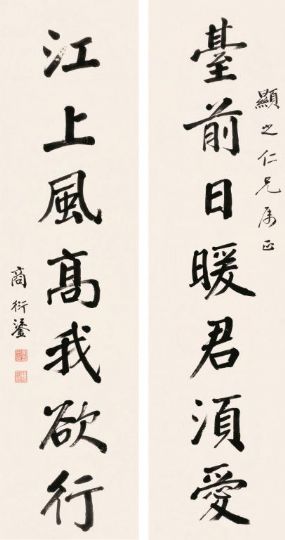 顯之仁兄屬正
臺前日暖君須愛
江上風高我欲行
商衍鎏